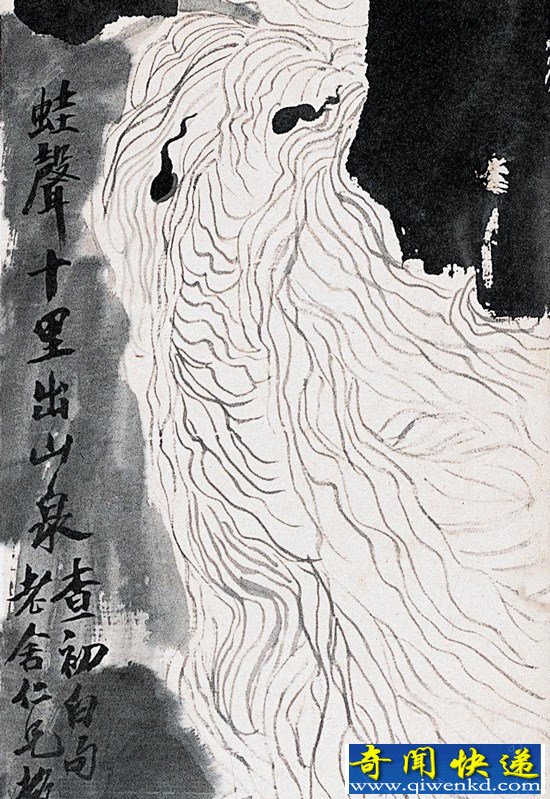 蛙聲十里出山泉
查初白句
老舍仁兄
奇闻快递
www.qiwenkd.com